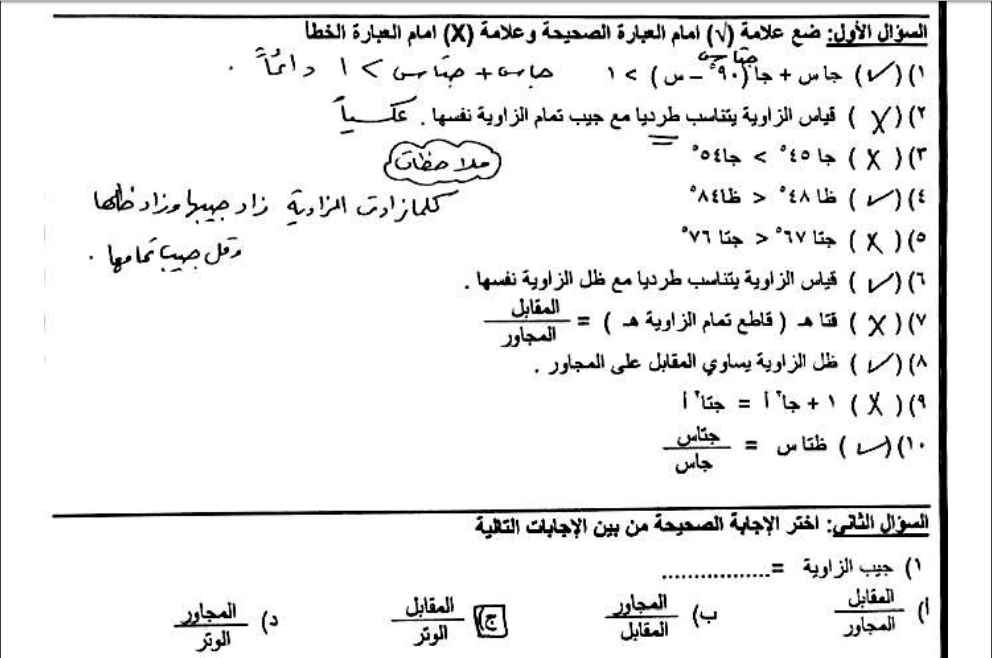 السؤال الأول: ضع علامة (√) امام العبارة الصحيحة وعلامة (X) امام العبارة الخطأ
جتاس
١) (✓) جاس + جا(٩٠° – س) > ١ جاس + جتاس > ١ دائماً .
٢) (X) قياس الزاوية يتناسب طرديا مع جيب تمام الزاوية نفسها . عكسياً
٣) (X) جا ٤٥° > جا٥٤°
ملاحظات
٤) (✓) ظا ٤٨° < ظا٨٤°
كلما زادت الزاوية زاد جيبها وزاد ظلها
٥) (X) جتا ٦٧° > جتا ٧٦°
وقل جيب تمامها .
٦) (✓) قياس الزاوية يتناسب طرديا مع ظل الزاوية نفسها .
٧) (X) قتا هـ ( قاطع تمام الزاوية هـ ) = المقابل / المجاور
٨) (✓) ظل الزاوية يساوي المقابل على المجاور .
٩) (X) ١ + جا٢ أ = جتا٢ أ
١٠) (✓) ظتاس = جتاس / جاس
السؤال الثاني: اختر الإجابة الصحيحة من بين الإجابات التالية
١) جيب الزاوية =.................
أ) المقابل / المجاور ب) المجاور / المقابل ج) المقابل / الوتر د) المجاور / الوتر